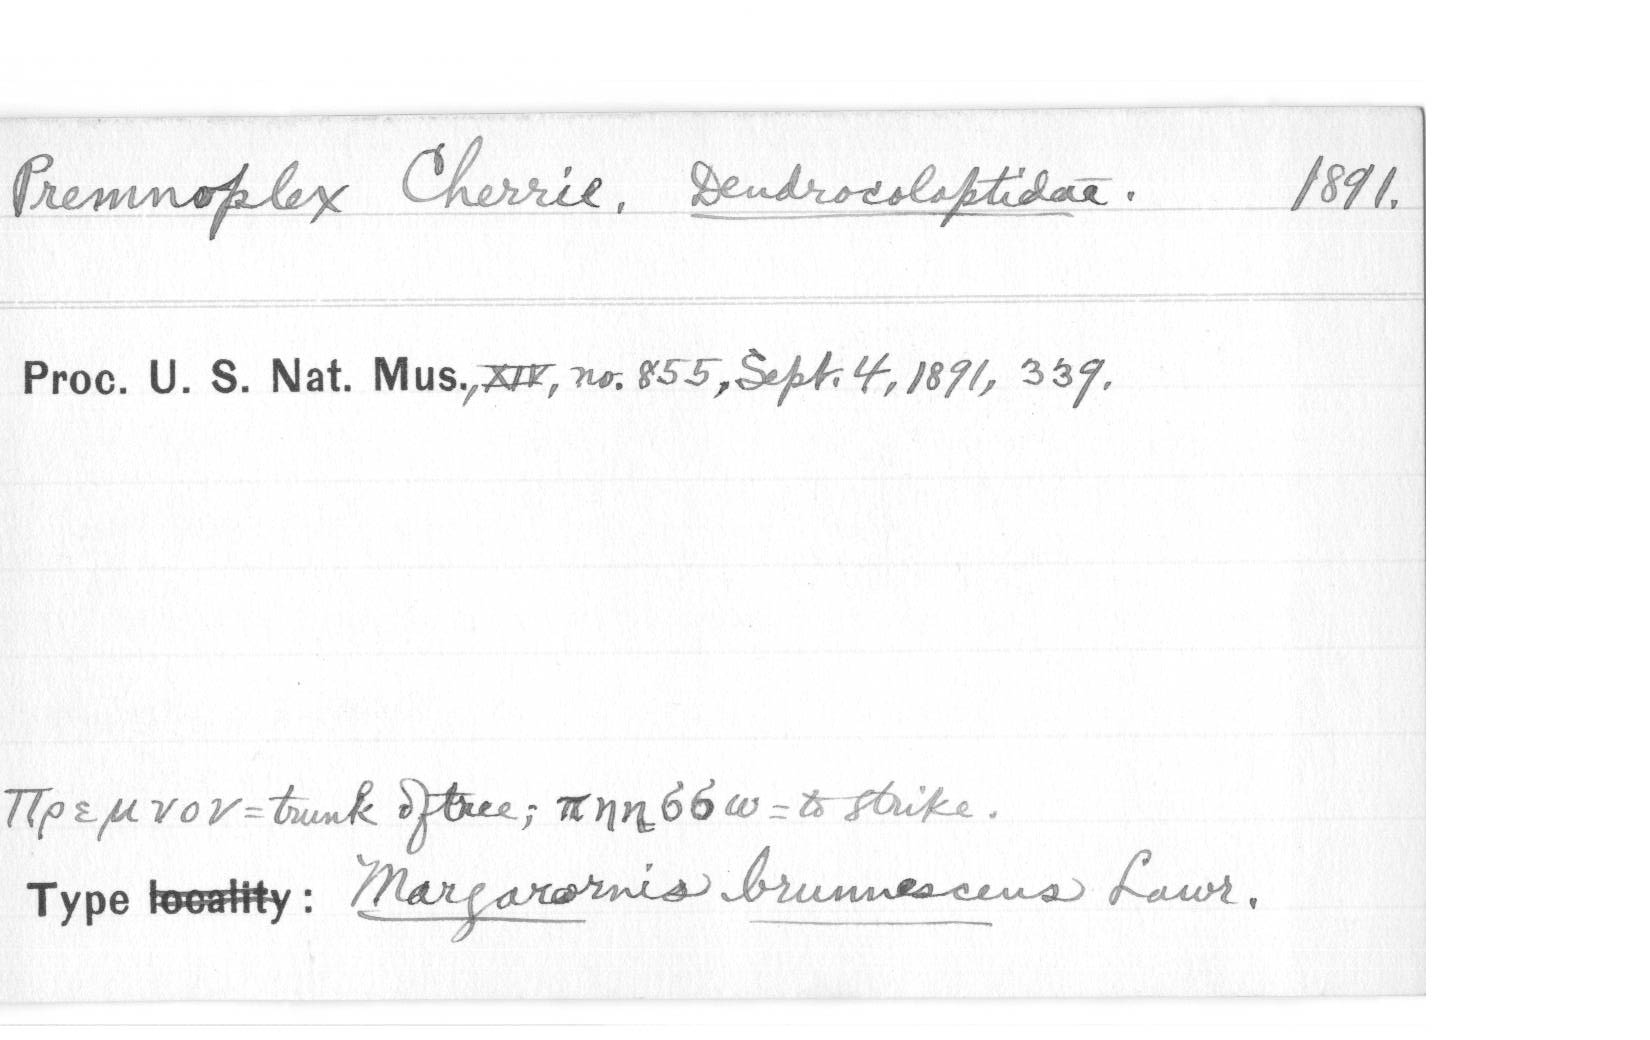 Premnoplex Cherrie. Dendrocolaptidae. 1891.
Proc. U. S. Nat. Mus., XIV, no. 855, Sept. 4, 1891, 339.
Πρεμνον = trunk of tree; πηησσω = to strike.
Type locality: Margarornis brunnescens Lawr.